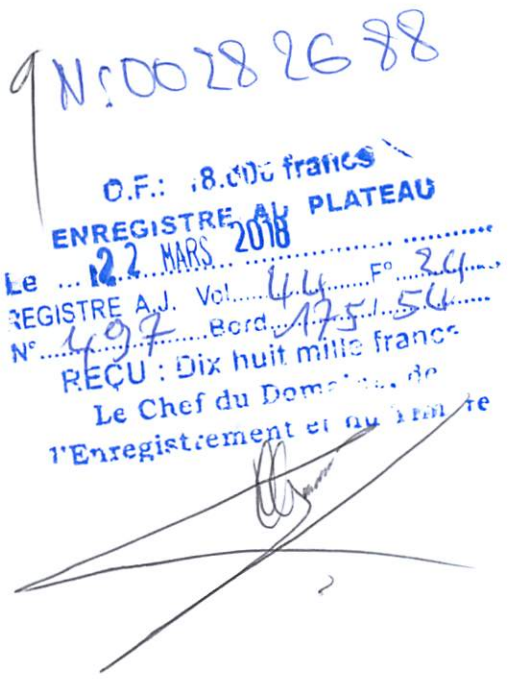 N: 00282688
O.F.: 18.000 francs
ENREGISTRE AU PLATEAU
Le ... 22 MARS 2018
REGISTRE A.J. Vol. 44 F° 24
N° 497 Bord. 175 / 54
REÇU : Dix huit mille francs
Le Chef du Domaine, de
l'Enregistrement et du Timbre